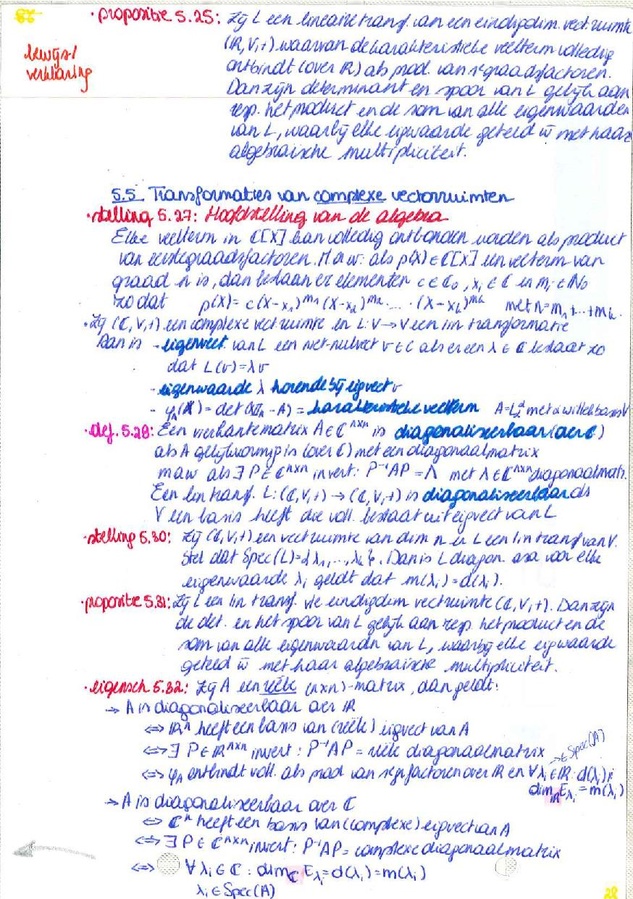 • propositie 5.25: Zij L een lineaire transf. van een eindigdim. vect.ruimte
(ℝ,V,+) waarvan de karakteristieke veelterm volledig
ontbindt (over ℝ) als prod. van 1ᵉgraadsfactoren.
bewijs/
verklaring
Dan zijn determinant en spoor van L gelijk aan
resp. het product en de som van alle eigenwaarden
van L, waarbij elke eigwaarde geteld w met haar
algebraïsche multipliciteit.
5.5 Transformaties van complexe vectorruimten
• stelling 5.27: Hoofdstelling van de algebra
Elke veelterm in ℂ[X] kan volledig ontbonden worden als product
van eerstegraadsfactoren. M.a.w. als p(X) ∈ ℂ[X] een veelterm van
graad n is, dan bestaan er elementen c ∈ ℂ₀, xᵢ ∈ ℂ en mᵢ ∈ ℕ₀
zodat p(X) = c(X-x₁)^m₁ (X-x₂)^m₂ .... (X-xₖ)^mₖ met n=m₁+...+mₖ.
• Zij (ℂ,V,+) een complexe vect.ruimte en L:V→V een lin transformatie
Dan is - eigenvect van L een niet-nulvect v ∈ als er een λ ∈ ℂ bestaat zo
dat L(v)=λv
- eigenwaarde λ horende bij eigvect v
- φ_A(X) = det(XIₙ-A) = karakteristieke veelterm met α willek basis V
• def. 5.28: Een vierkante matrix A∈ℂⁿˣⁿ is diagonaliseerbaar (over ℂ)
als A gelijkvormig is (over ℂ) met een diagonaalmatrix
maw als ∃ P∈ℂⁿˣⁿ invert: P⁻¹AP = Λ met λ∈ℂⁿˣⁿ diagonaalmatr.
Een lin transf. L:(ℂ,V,+)→(ℂ,V,+) is diagonaliseerbaar als
V een basis heeft die voll. bestaat uit eigvect van L
• stelling 5.30: Zij (ℂ,V,+) een vectruimte van dim n en L een lin transf van V.
Stel dat Spec(L)={λ₁,...,λₖ}. Dan is L diagon. asa voor elke
eigenwaarde λᵢ geldt dat m(λᵢ)=d(λᵢ).
• propositie 5.31: Zij L een lin transf. v/e eindigdim vectruimte (ℂ,V,+). Dan zijn
de det. en het spoor van L gelijk aan resp. het product en de
som van alle eigenwaarden van L, waarbij elke eigwaarde
geteld w met haar algebraïsche multipliciteit.
• eigensch 5.32: Zij A een reële (n×n)-matrix, dan geldt:
→ A is diagonaliseerbaar over ℝ
⇔ ℝⁿ heeft een basis van (reële) eigvect van A
⇔ ∃ P∈ℝⁿˣⁿ invert: P⁻¹AP = reële diagonaalmatrix
→ Spec(A)
⇔ φ_A ontbindt voll. als prod van factoren over ℝ en ∀λᵢ∈ℝ: d(λᵢ)=
dim_ℝ E_λᵢ = m(λᵢ)
→ A is diagonaliseerbaar over ℂ
⇔ ℂⁿ heeft een basis van (complexe) eigvect van A
⇔ ∃ P∈ℂⁿˣⁿ invert: P⁻¹AP = complexe diagonaalmatrix
⇔ ∀ λᵢ∈ℂ: dim_ℂ E_λᵢ = d(λᵢ) = m(λᵢ)
λᵢ ∈ Spec(A)